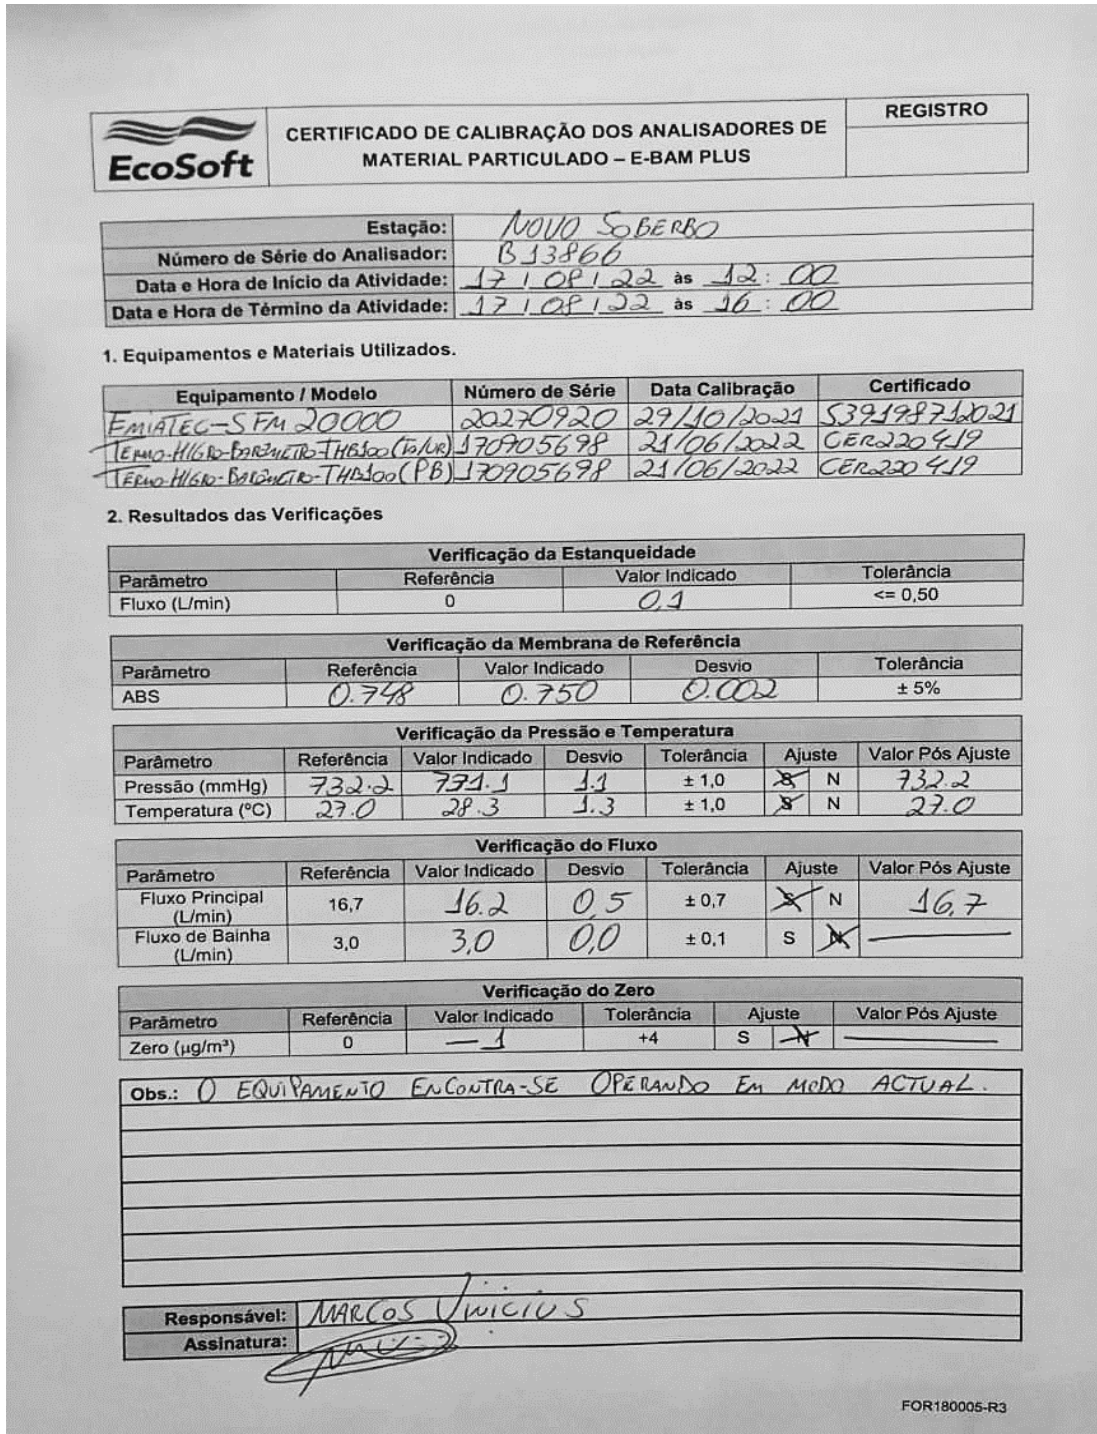 EcoSoft
CERTIFICADO DE CALIBRAÇÃO DOS ANALISADORES DE
MATERIAL PARTICULADO – E-BAM PLUS
REGISTRO
Estação: NOVO SOBERBO
Número de Série do Analisador: B13866
Data e Hora de Início da Atividade: 17 / 08 / 22 às 12 : 00
Data e Hora de Término da Atividade: 17 / 08 / 22 às 16 : 00
1. Equipamentos e Materiais Utilizados.
Equipamento / Modelo Número de Série Data Calibração Certificado
EMIATEC-SFM 20000 20270920 29/10/2021 S39198712021
TERMO-HIGRO-BARÔMETRO-THB100 170905698 21/06/2022 CER220419
TERMO-HIGRO-BARÔMETRO-THB100 (PB) 170905698 21/06/2022 CER220419
2. Resultados das Verificações
Verificação da Estanqueidade
Parâmetro Referência Valor Indicado Tolerância
Fluxo (L/min) 0 0,1 <= 0,50
Verificação da Membrana de Referência
Parâmetro Referência Valor Indicado Desvio Tolerância
ABS 0.748 0.750 0.002 ± 5%
Verificação da Pressão e Temperatura
Parâmetro Referência Valor Indicado Desvio Tolerância Ajuste Valor Pós Ajuste
Pressão (mmHg) 732.2 731.1 1.1 ± 1,0 S N 732.2
Temperatura (ºC) 27.0 28.3 1.3 ± 1,0 S N 27.0
Verificação do Fluxo
Parâmetro Referência Valor Indicado Desvio Tolerância Ajuste Valor Pós Ajuste
Fluxo Principal (L/min) 16,7 16.2 0,5 ± 0,7 S N 16,7
Fluxo de Bainha (L/min) 3,0 3,0 0,0 ± 0,1 S N —
Verificação do Zero
Parâmetro Referência Valor Indicado Tolerância Ajuste Valor Pós Ajuste
Zero (µg/m³) 0 — 1 +4 S N —
Obs.: O EQUIPAMENTO ENCONTRA-SE OPERANDO EM MODO ACTUAL.
Responsável: MARCOS VINICIUS
Assinatura:
FOR180005-R3